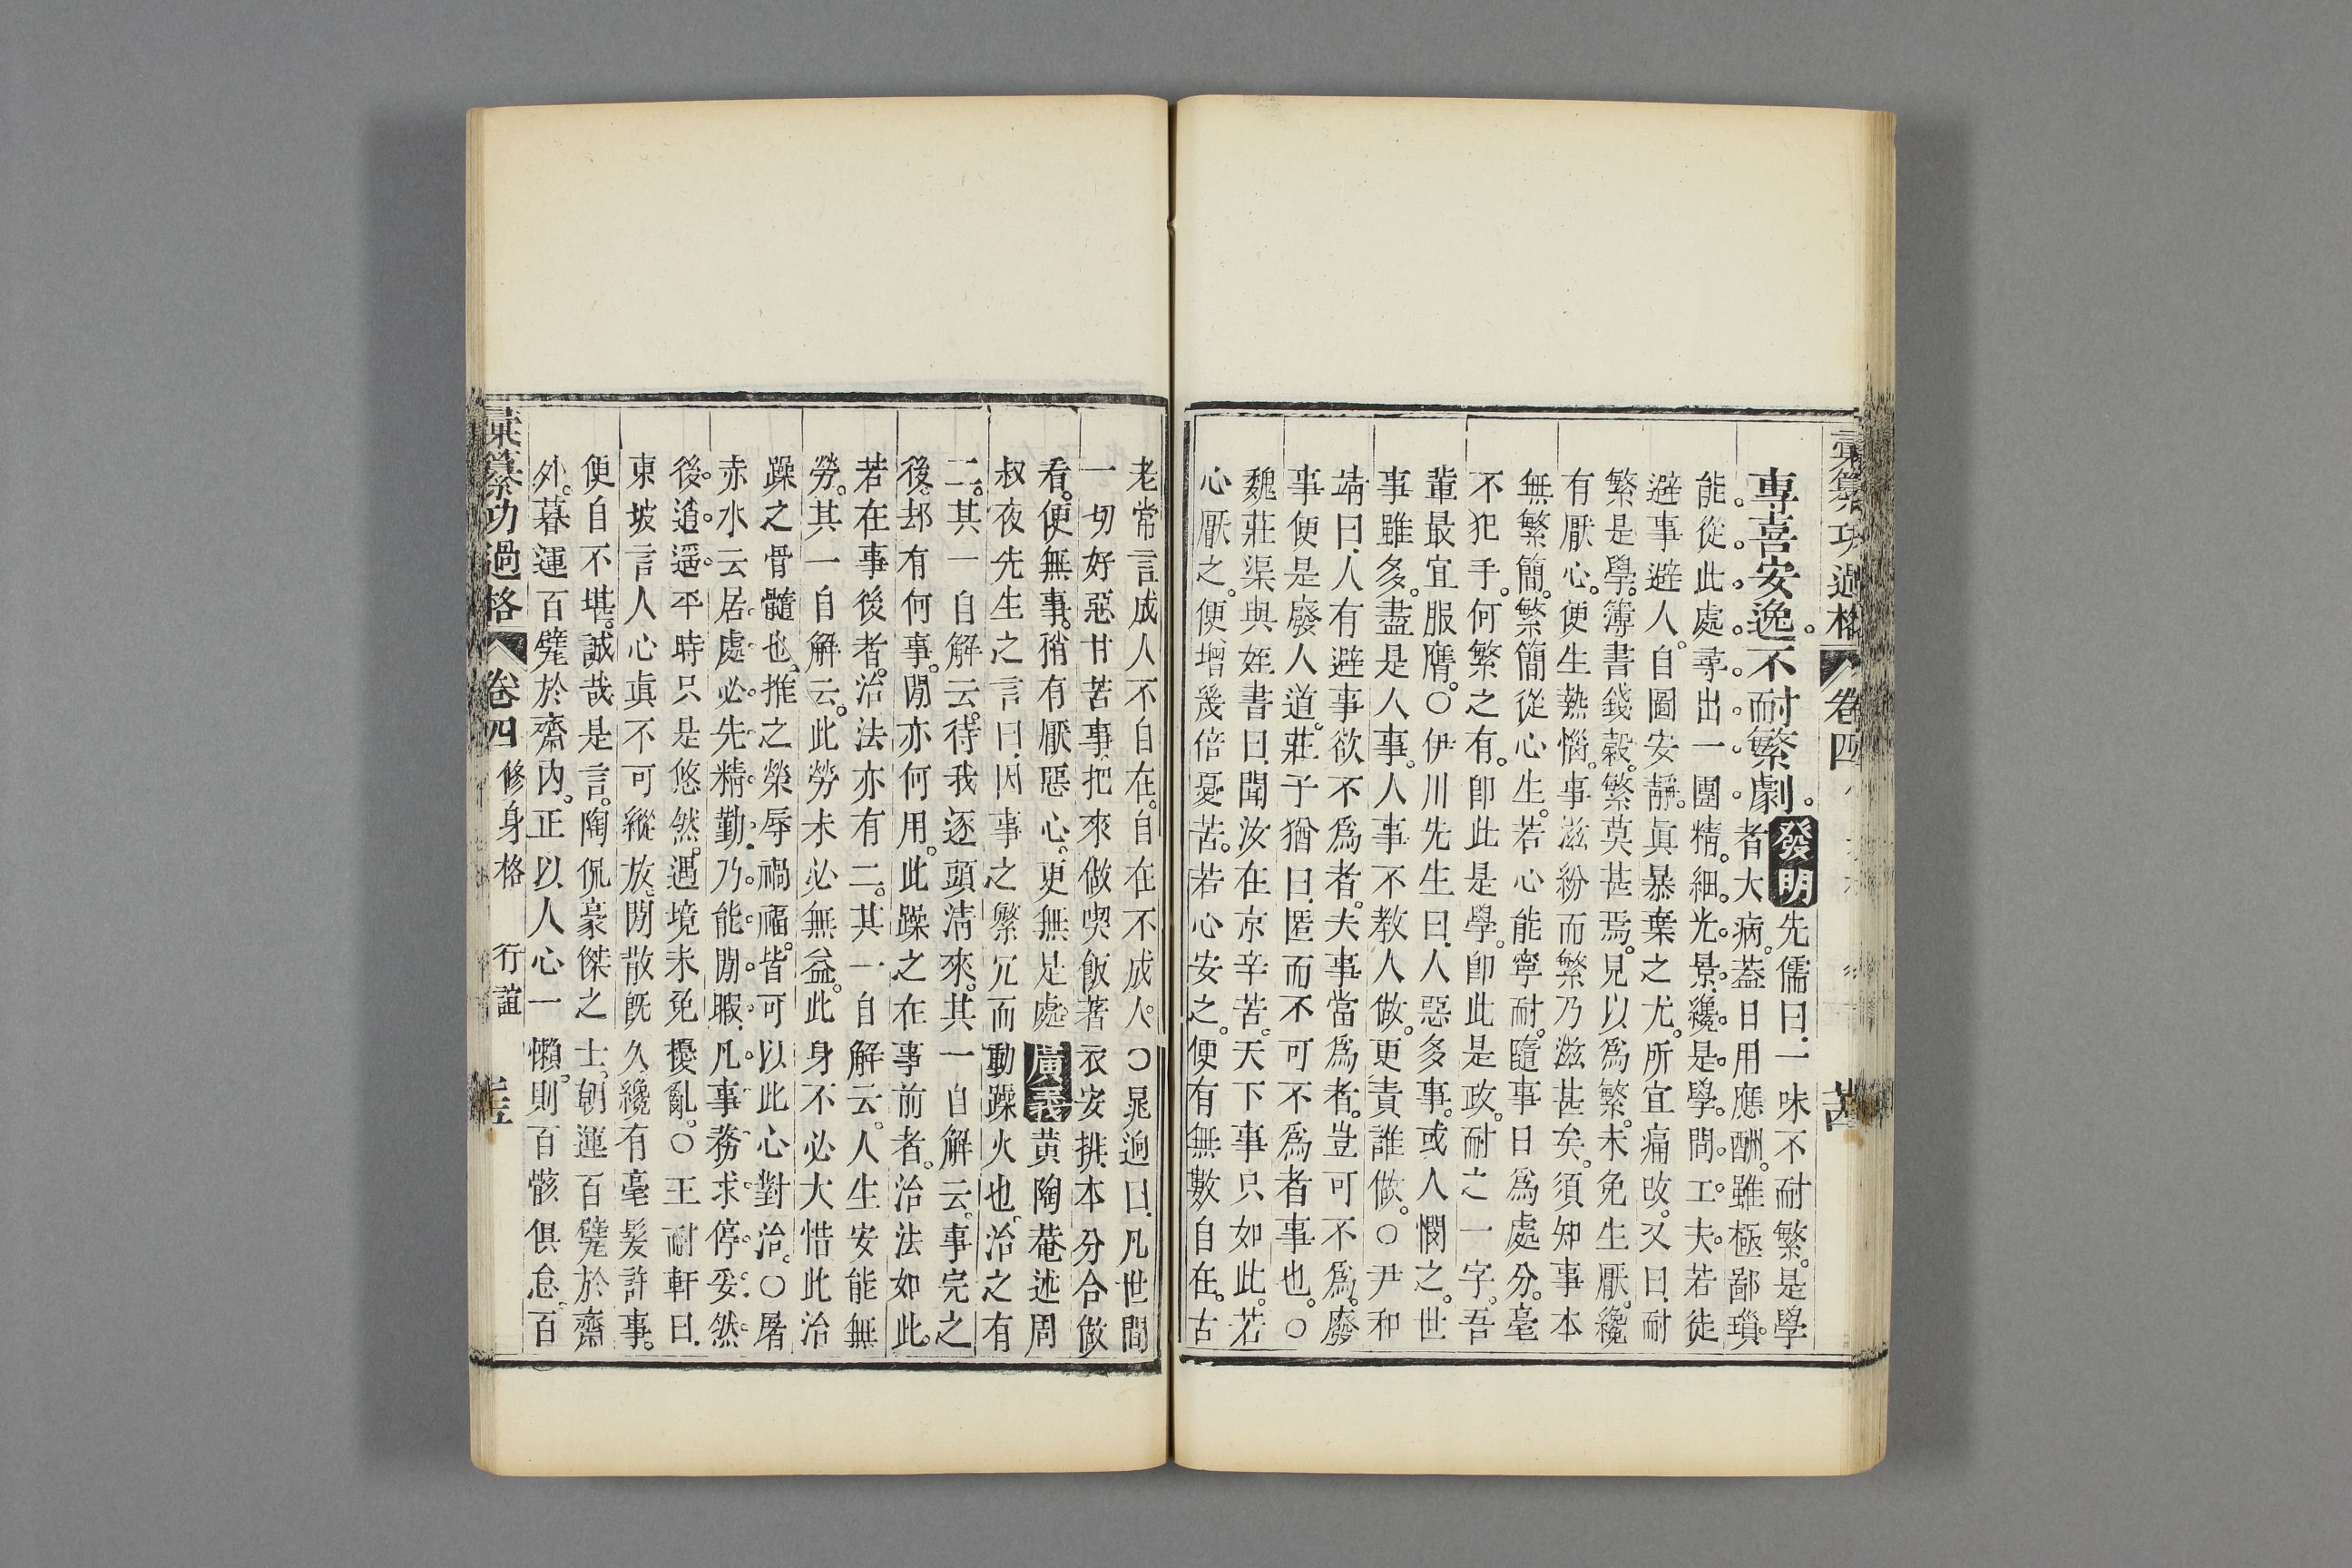 彙纂功過格 卷四
專喜安逸。不耐繁劇。發明先儒曰、一味不耐繁。是學
者大病。蓋日用應酬。雖極鄙瑣。
能。從此處尋出一團精。細。光。景。纔。是。學。問。工。夫。若徒
避事避人。自圖安靜。眞暴棄之尤。所宜痛改。又曰、耐
繁是學。簿書錢穀。繁莫甚焉。見以爲繁。未免生厭。纔
有厭心。便生熱惱。事滋紛而繁乃滋甚矣。須知事本
無繁簡。繁簡從心生。若心能寧耐。隨事日爲處分。毫
不犯手。何繁之有。卽此是學。卽此是政。耐之一字。吾
輩最宜服膺。○伊川先生曰、人惡多事。或人憫之。世
事雖多。盡是人事。人事不教人做。更責誰做。○尹和
靖曰、人有避事欲不爲者。夫事當爲者。豈可不爲。廢
事便是廢人道。莊子猶曰、匿而不可不爲者事也。○
魏莊渠與姪書曰、聞汝在京辛苦。天下事只如此。若
心厭之。便增幾倍憂苦。若心安之。便有無數自在。古
老常言成人不自在。自在不成人。○晁迥曰、凡世間
一切好惡甘苦事、把來做喫飯著衣安排、本分合做
看。便無事。稍有厭惡心。更無是處。廣義黃陶菴述周
叔夜先生之言曰、因事之繁冗而動躁火也。治之有
二。其一自解云。待我逐頭淸來。其一自解云。事完之
後。却有何事。閒亦何用。此躁之在事前者。治法如此。
若在事後者。治法亦有二。其一自解云。人生安能無
勞。其一自解云。此勞未必無益。此身不必大惜此治
躁之骨髓也。推之榮辱禍福。皆可以此心對治。○屠
赤水云居處必先精勤。乃能閒暇、凡事務求停妥。然
後。逍。遥。平時只是悠然。遇境未免擾亂。○王耐軒曰、
東坡言人心眞不可縱放。閒散旣久、纔有毫髮許事。
便自不堪。誠哉是言。陶侃豪傑之士。朝運百甓於齋
外。暮運百甓於齋內。正以人心一懶。則百骸俱怠。百
彙纂功過格 卷四 修身格 行誼